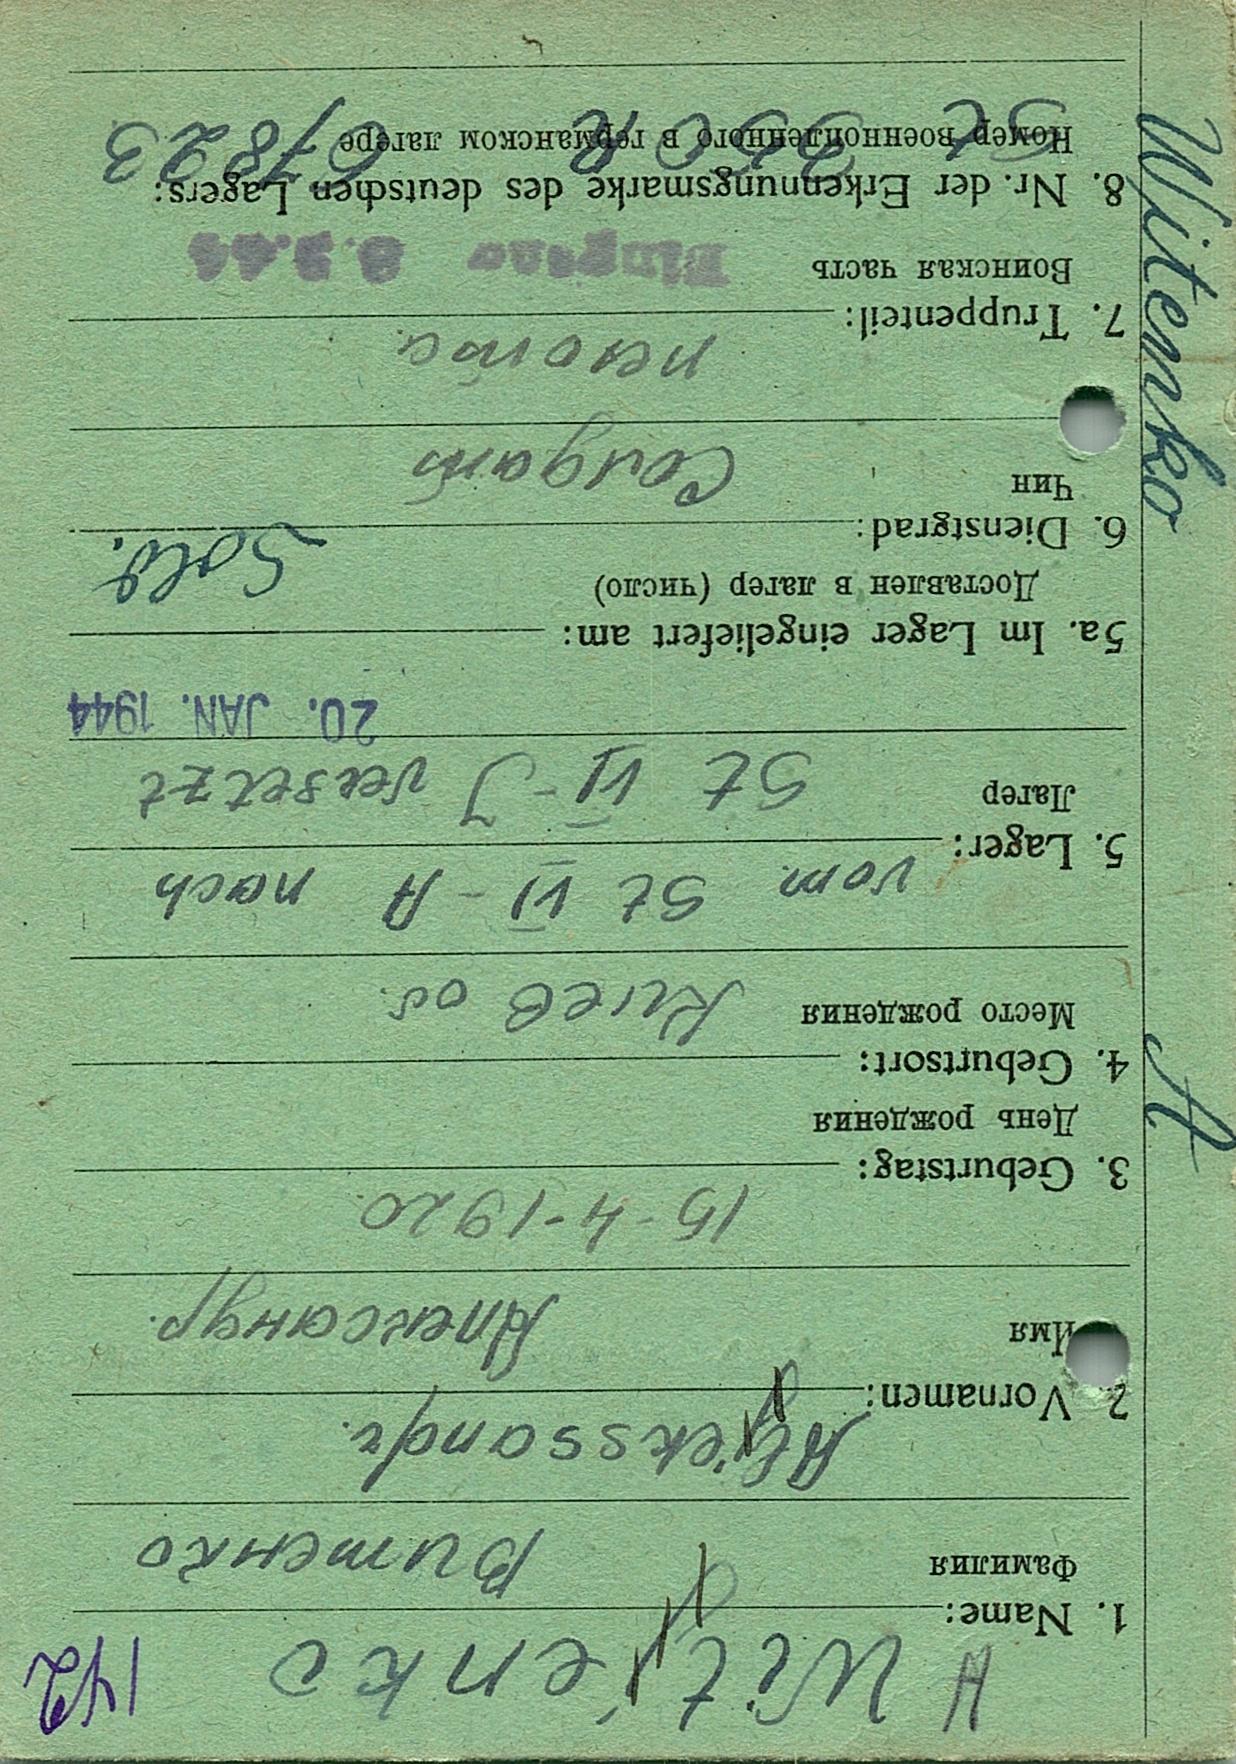 142
A Witjenko
1. Name:
Фамилия
Витенко
Aljekssandr.
2. Vornamen:
Имя
Александр.
15-4-1920.
3. Geburtstag:
День рождения
4. Geburtsort:
Место рождения
Киев об.
vom St VI-A nach
5. Lager:
Лагер
St VI-J versetzt
20. JAN. 1944
5a. Im Lager eingeliefert am:
Доставлен в лагер (число)
Sold.
6. Dienstgrad:
Чин
Солдат
пехота
7. Truppenteil:
Воинская часть
8. Nr. der Erkennungsmarke des deutschen Lagers:
Номер военнопленного в германском лагере
St 350 R 67823
Witenko A